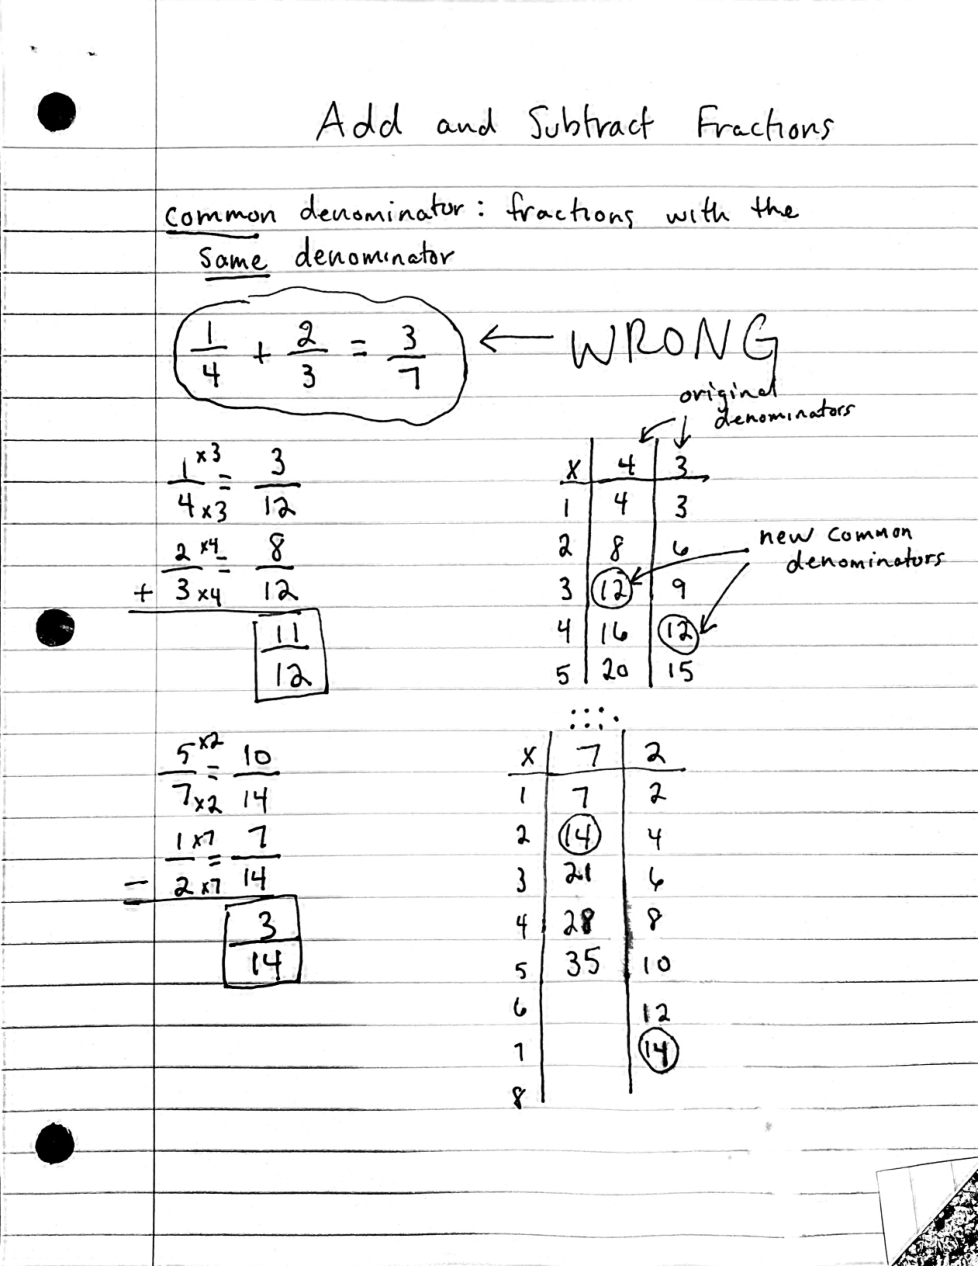 Add and Subtract Fractions
common denominator: fractions with the
same denominator
1/4 + 2/3 = 3/7 ← WRONG
original
denominators
1/4 ×3/×3 = 3/12
+ 2/3 ×4/×4 = 8/12
11/12
x | 4 | 3
1 | 4 | 3
2 | 8 | 6
3 | 12 | 9
4 | 16 | 12
5 | 20 | 15
new common
denominators
5/7 ×2/×2 = 10/14
- 1/2 ×7/×7 = 7/14
3/14
x | 7 | 2
1 | 7 | 2
2 | 14 | 4
3 | 21 | 6
4 | 28 | 8
5 | 35 | 10
6 | | 12
7 | | 14
8